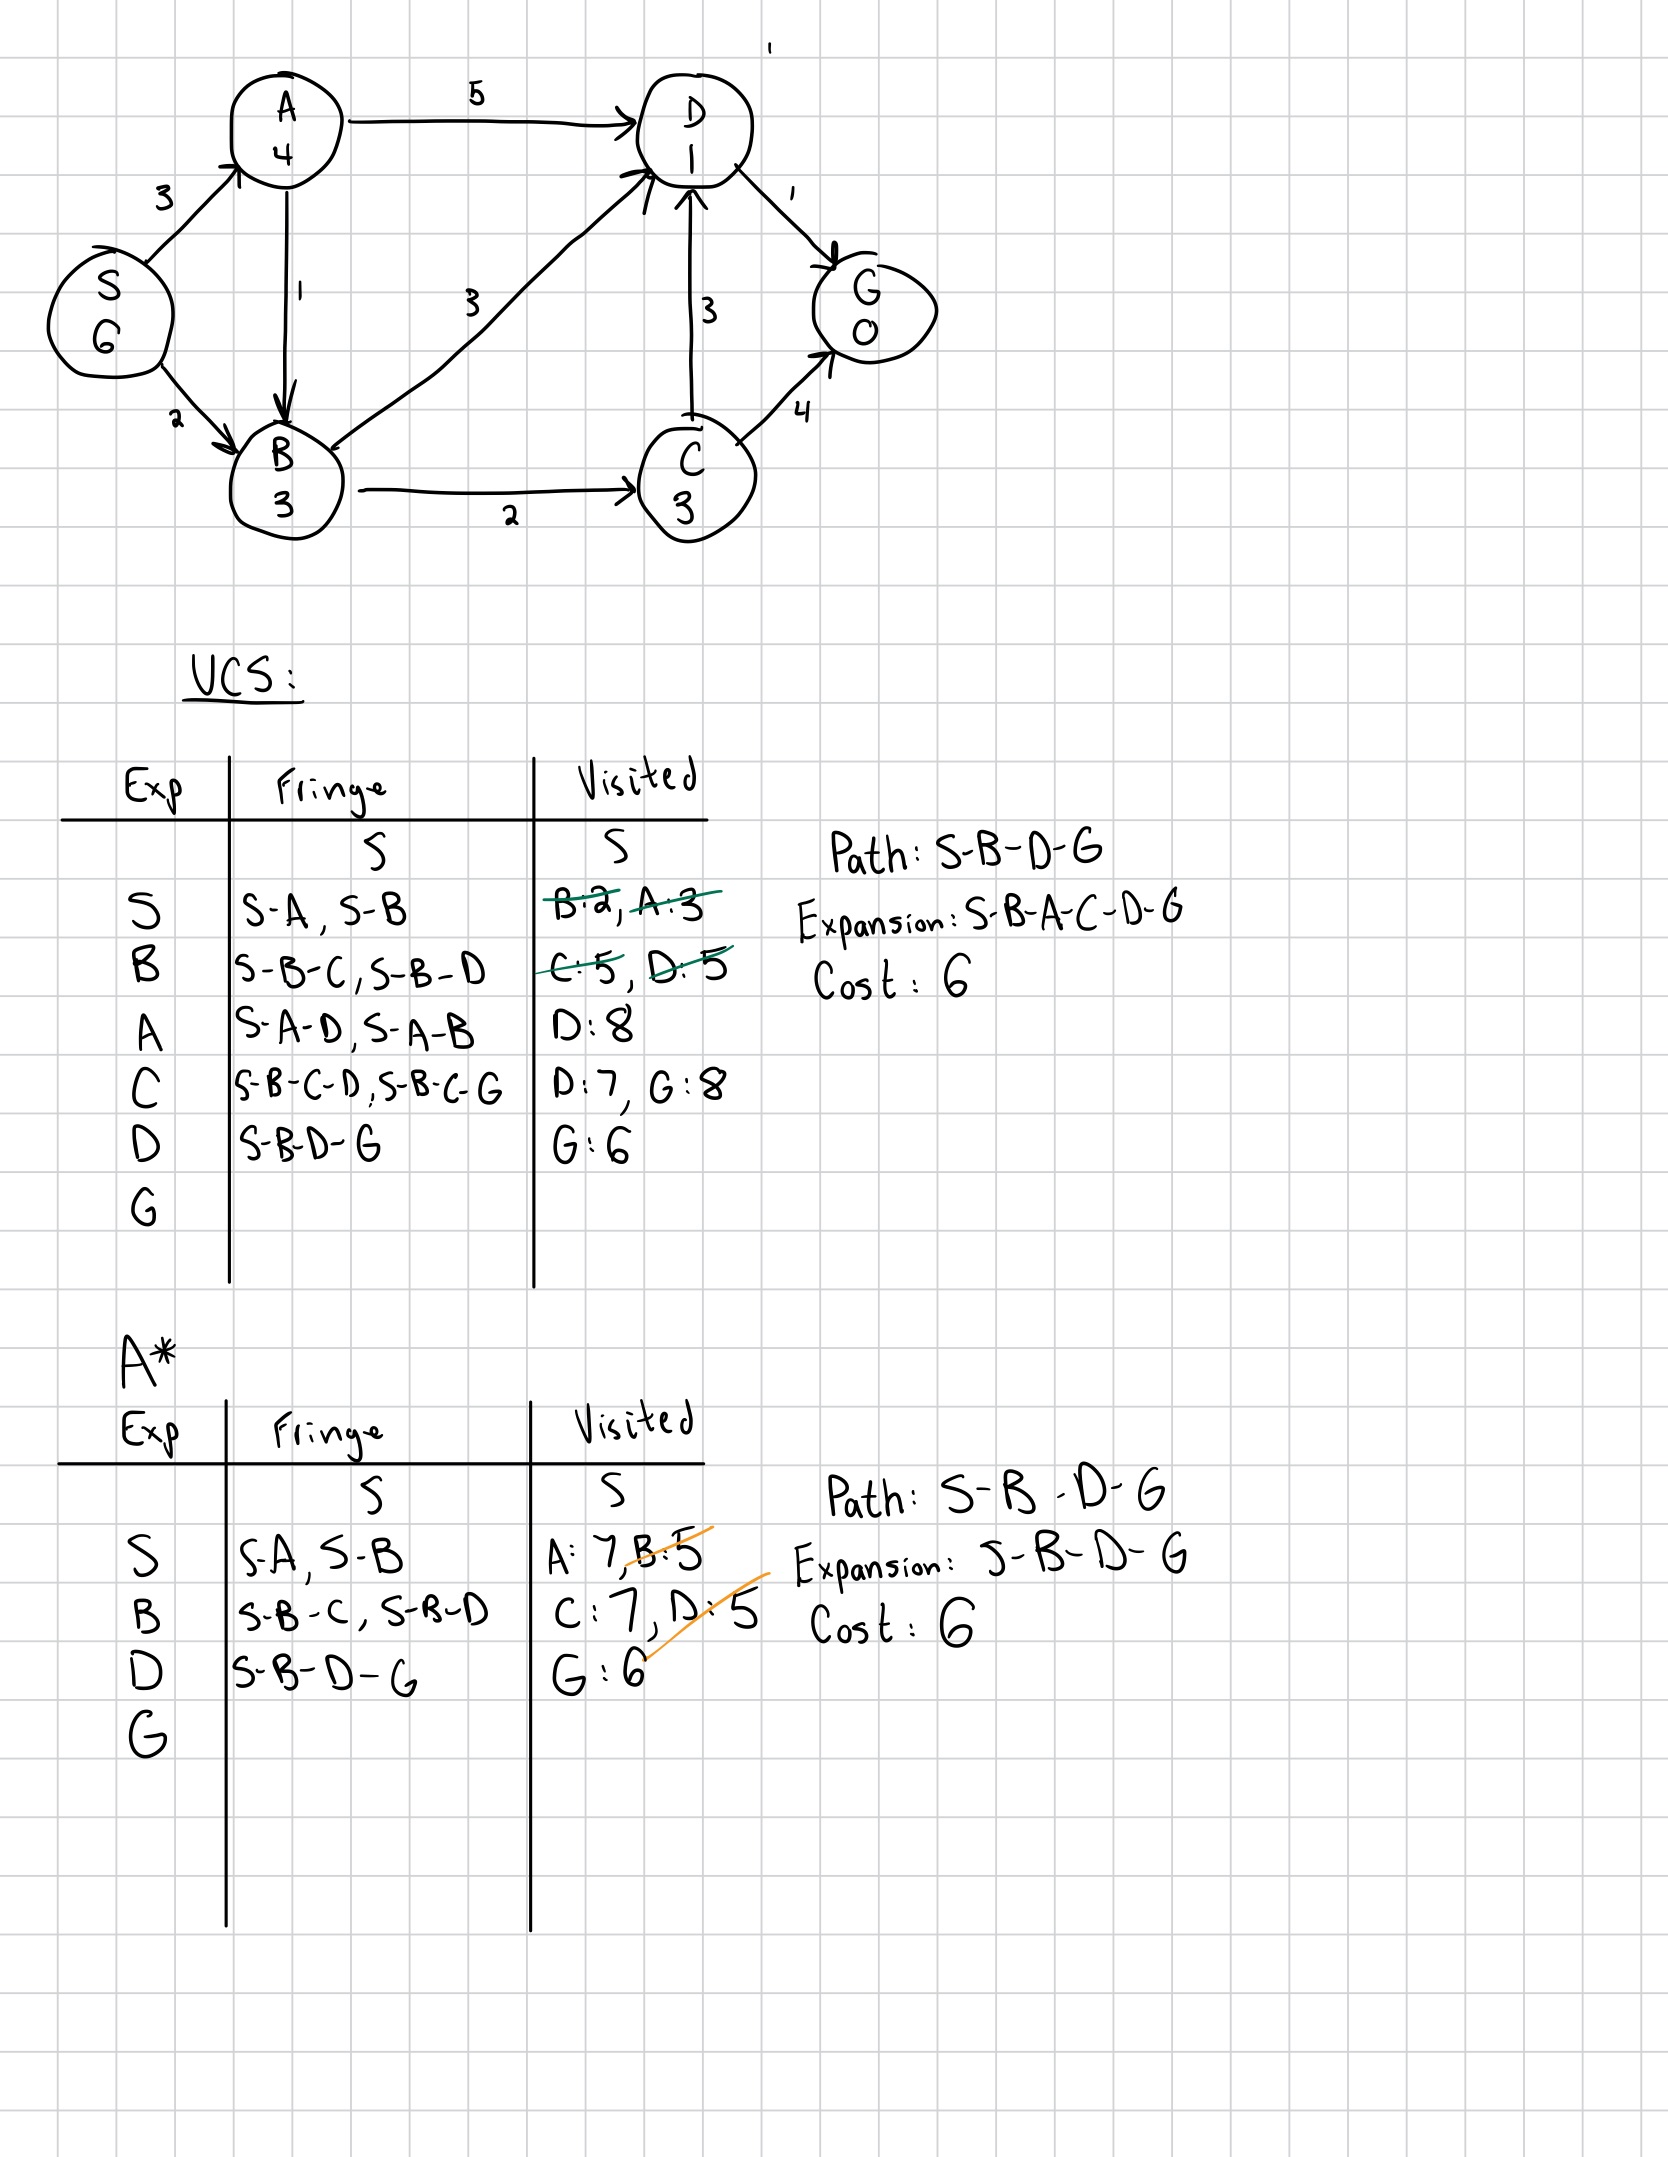 A
4
5
D
1
3
1
S
6
1
3
3
G
0
2
4
B
3
C
3
2
UCS:
Exp Fringe Visited
S S
S S-A, S-B B:2, A:3
B S-B-C, S-B-D C:5, D:5
A S-A-D, S-A-B D:8
C S-B-C-D, S-B-C-G D:7, G:8
D S-B-D-G G:6
G
Path: S-B-D-G
Expansion: S-B-A-C-D-G
Cost: 6
A*
Exp Fringe Visited
S S
S S-A, S-B A: 7, B:5
B S-B-C, S-B-D C:7, D:5
D S-B-D-G G:6
G
Path: S-B-D-G
Expansion: S-B-D-G
Cost: 6